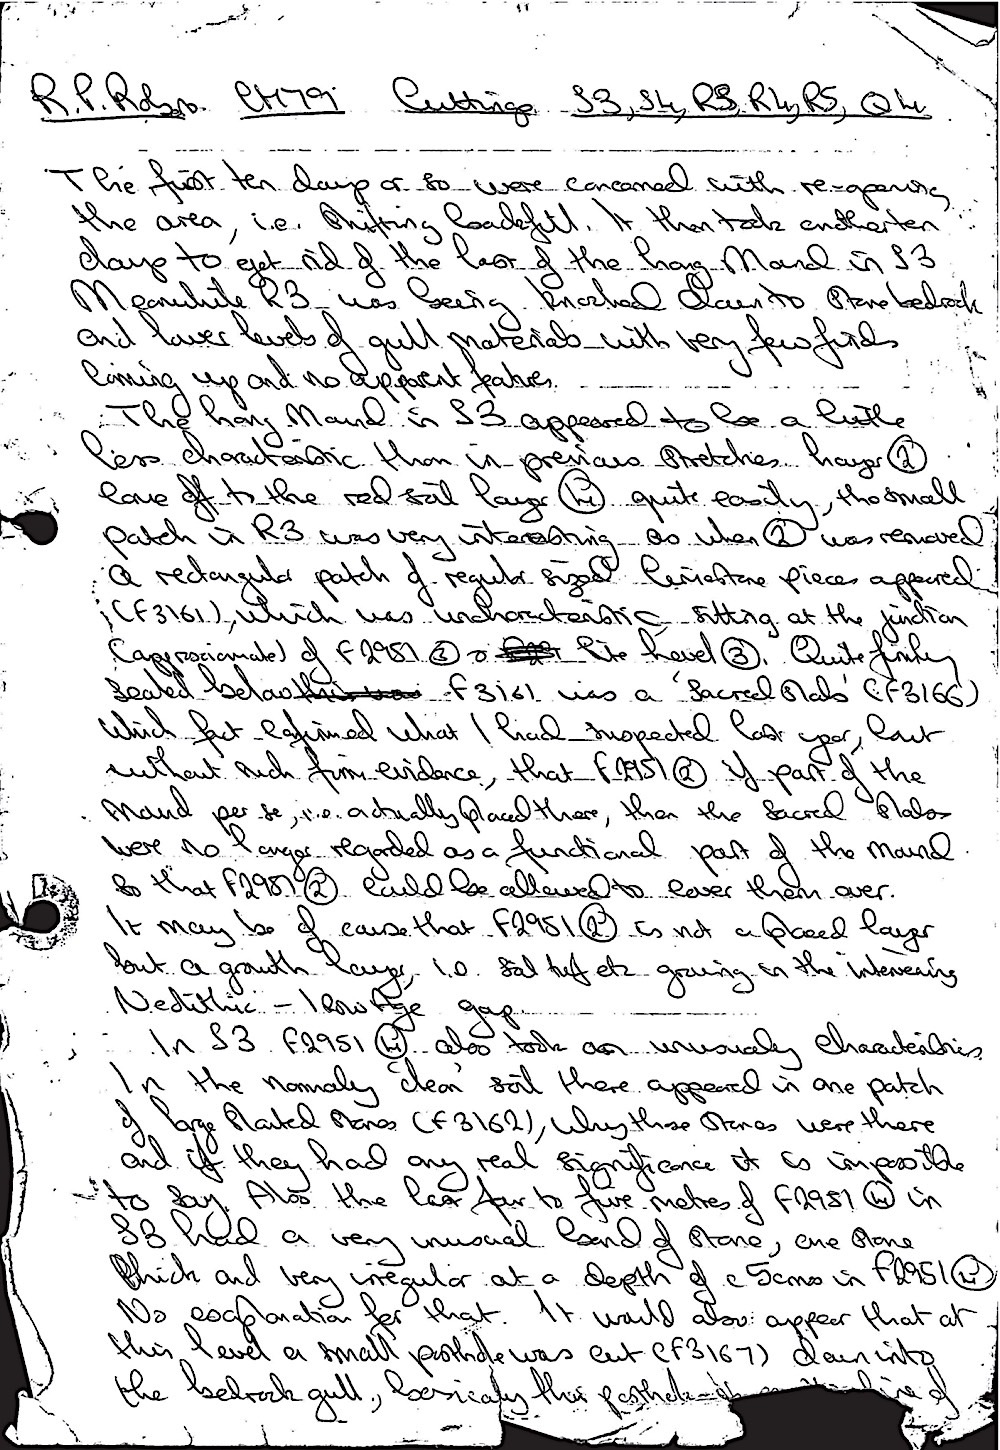 R.P. Robson. CH79. Cuttings S3, S4, R3, R4, R5, Q4
The first ten days or so were concerned with re-opening
the area, i.e. shifting backfill. It then took another ten
days to get rid of the last of the Long Mound in S3
Meanwhile R3 was being knocked down to stone bedrock
and lower levels of gull materials with very few finds
coming up and no apparent features.
The Long Mound in S3 appeared to be a little
less characteristic than in previous stretches. Layer ②
came off to the red soil layer ④ quite easily, tho small
patch in R3 was very interesting as when ② was removed
a rectangular patch of regular sized limestone pieces appeared
(F3161), which was uncharacteristic, sitting at the junction
(approximate) of F2951 ② & like level ③. Quite firmly
sealed below F3161 was a 'Sacred Slab' (F3166)
which fact confirmed what I had suspected last year, but
without such firm evidence, that F2951 ② if part of the
Mound per se, i.e. actually placed there, then the Sacred Slabs
were no longer regarded as a functional part of the mound
so that F2951 ② could be allowed to cover them over.
It may be of course that F2951 ② is not a placed layer
but a growth layer, i.e. soil turf etc growing in the intervening
Neolithic - Iron Age gap.
In S3 F2951 ④ also took on unusual characteristics.
In the normally 'clean' soil there appeared in one patch
of large slated stones (F3162), why these stones were there
and if they had any real significance it is impossible
to say. Also the last four to five metres of F2951 ④ in
S3 had a very unusual band of stone, one stone
thick and very irregular at a depth of c 5cms in F2951 ④
No explanation for that. It would also appear that at
this level a small posthole was cut (F3167) down into
the bedrock gull, basically this posthole is of